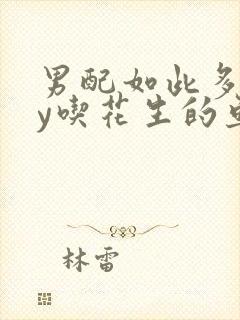 男配如此多
y喫花生的
林雷